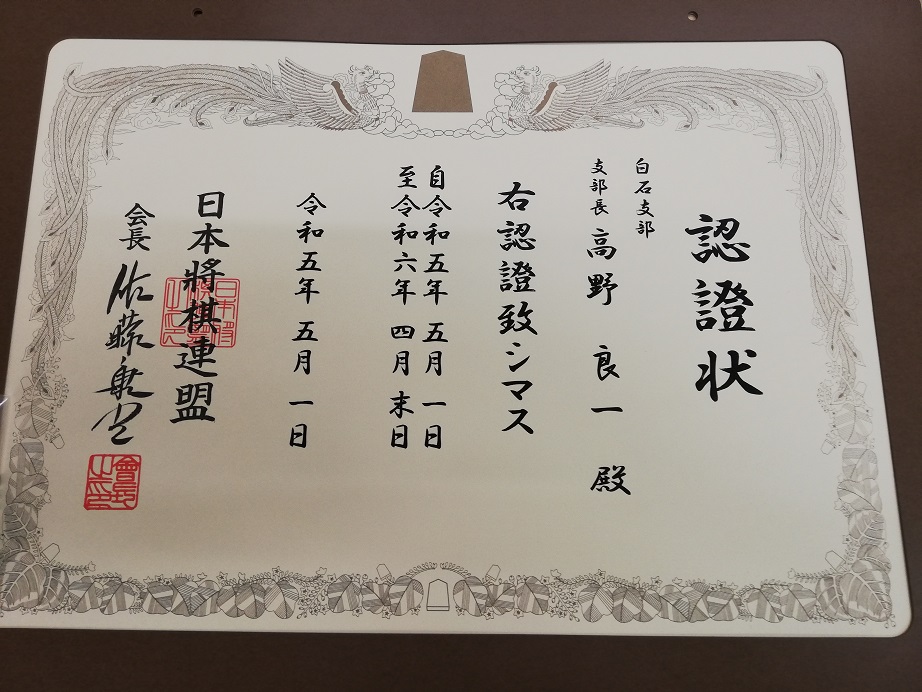 認證状
白石支部
支部長 高野 良一 殿
右認證致シマス
自令和五年 五月 一日
至令和六年 四月 末日
令和五年 五月 一日
日本將棋連盟
会長 佐藤康光